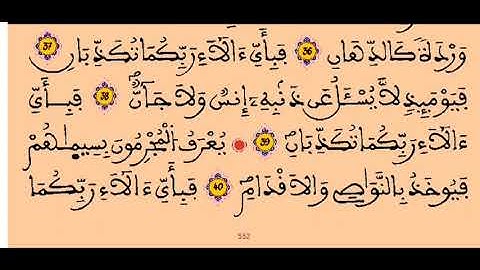 وَرْدَةً كَالدِّهَانِ 36 فَبِأَيِّ ءَالَآءِ رَبِّكُمَا تُكَذِّبَانِ 37
فَيَوْمَئِذٍ لَّا يُسْـَٔلُ عَن ذَنۢبِهِۦٓ إِنسٌ وَلَا جَآنٌّ 38 فَبِأَيِّ
ءَالَآءِ رَبِّكُمَا تُكَذِّبَانِ 39 يُعْرَفُ الْمُجْرِمُونَ بِسِيمَٰهُمْ
فَيُوخَذُ بِالنَّوَٰصِے وَالَاقْدَامِ 40 فَبِأَيِّ ءَالَآءِ رَبِّكُمَا
552